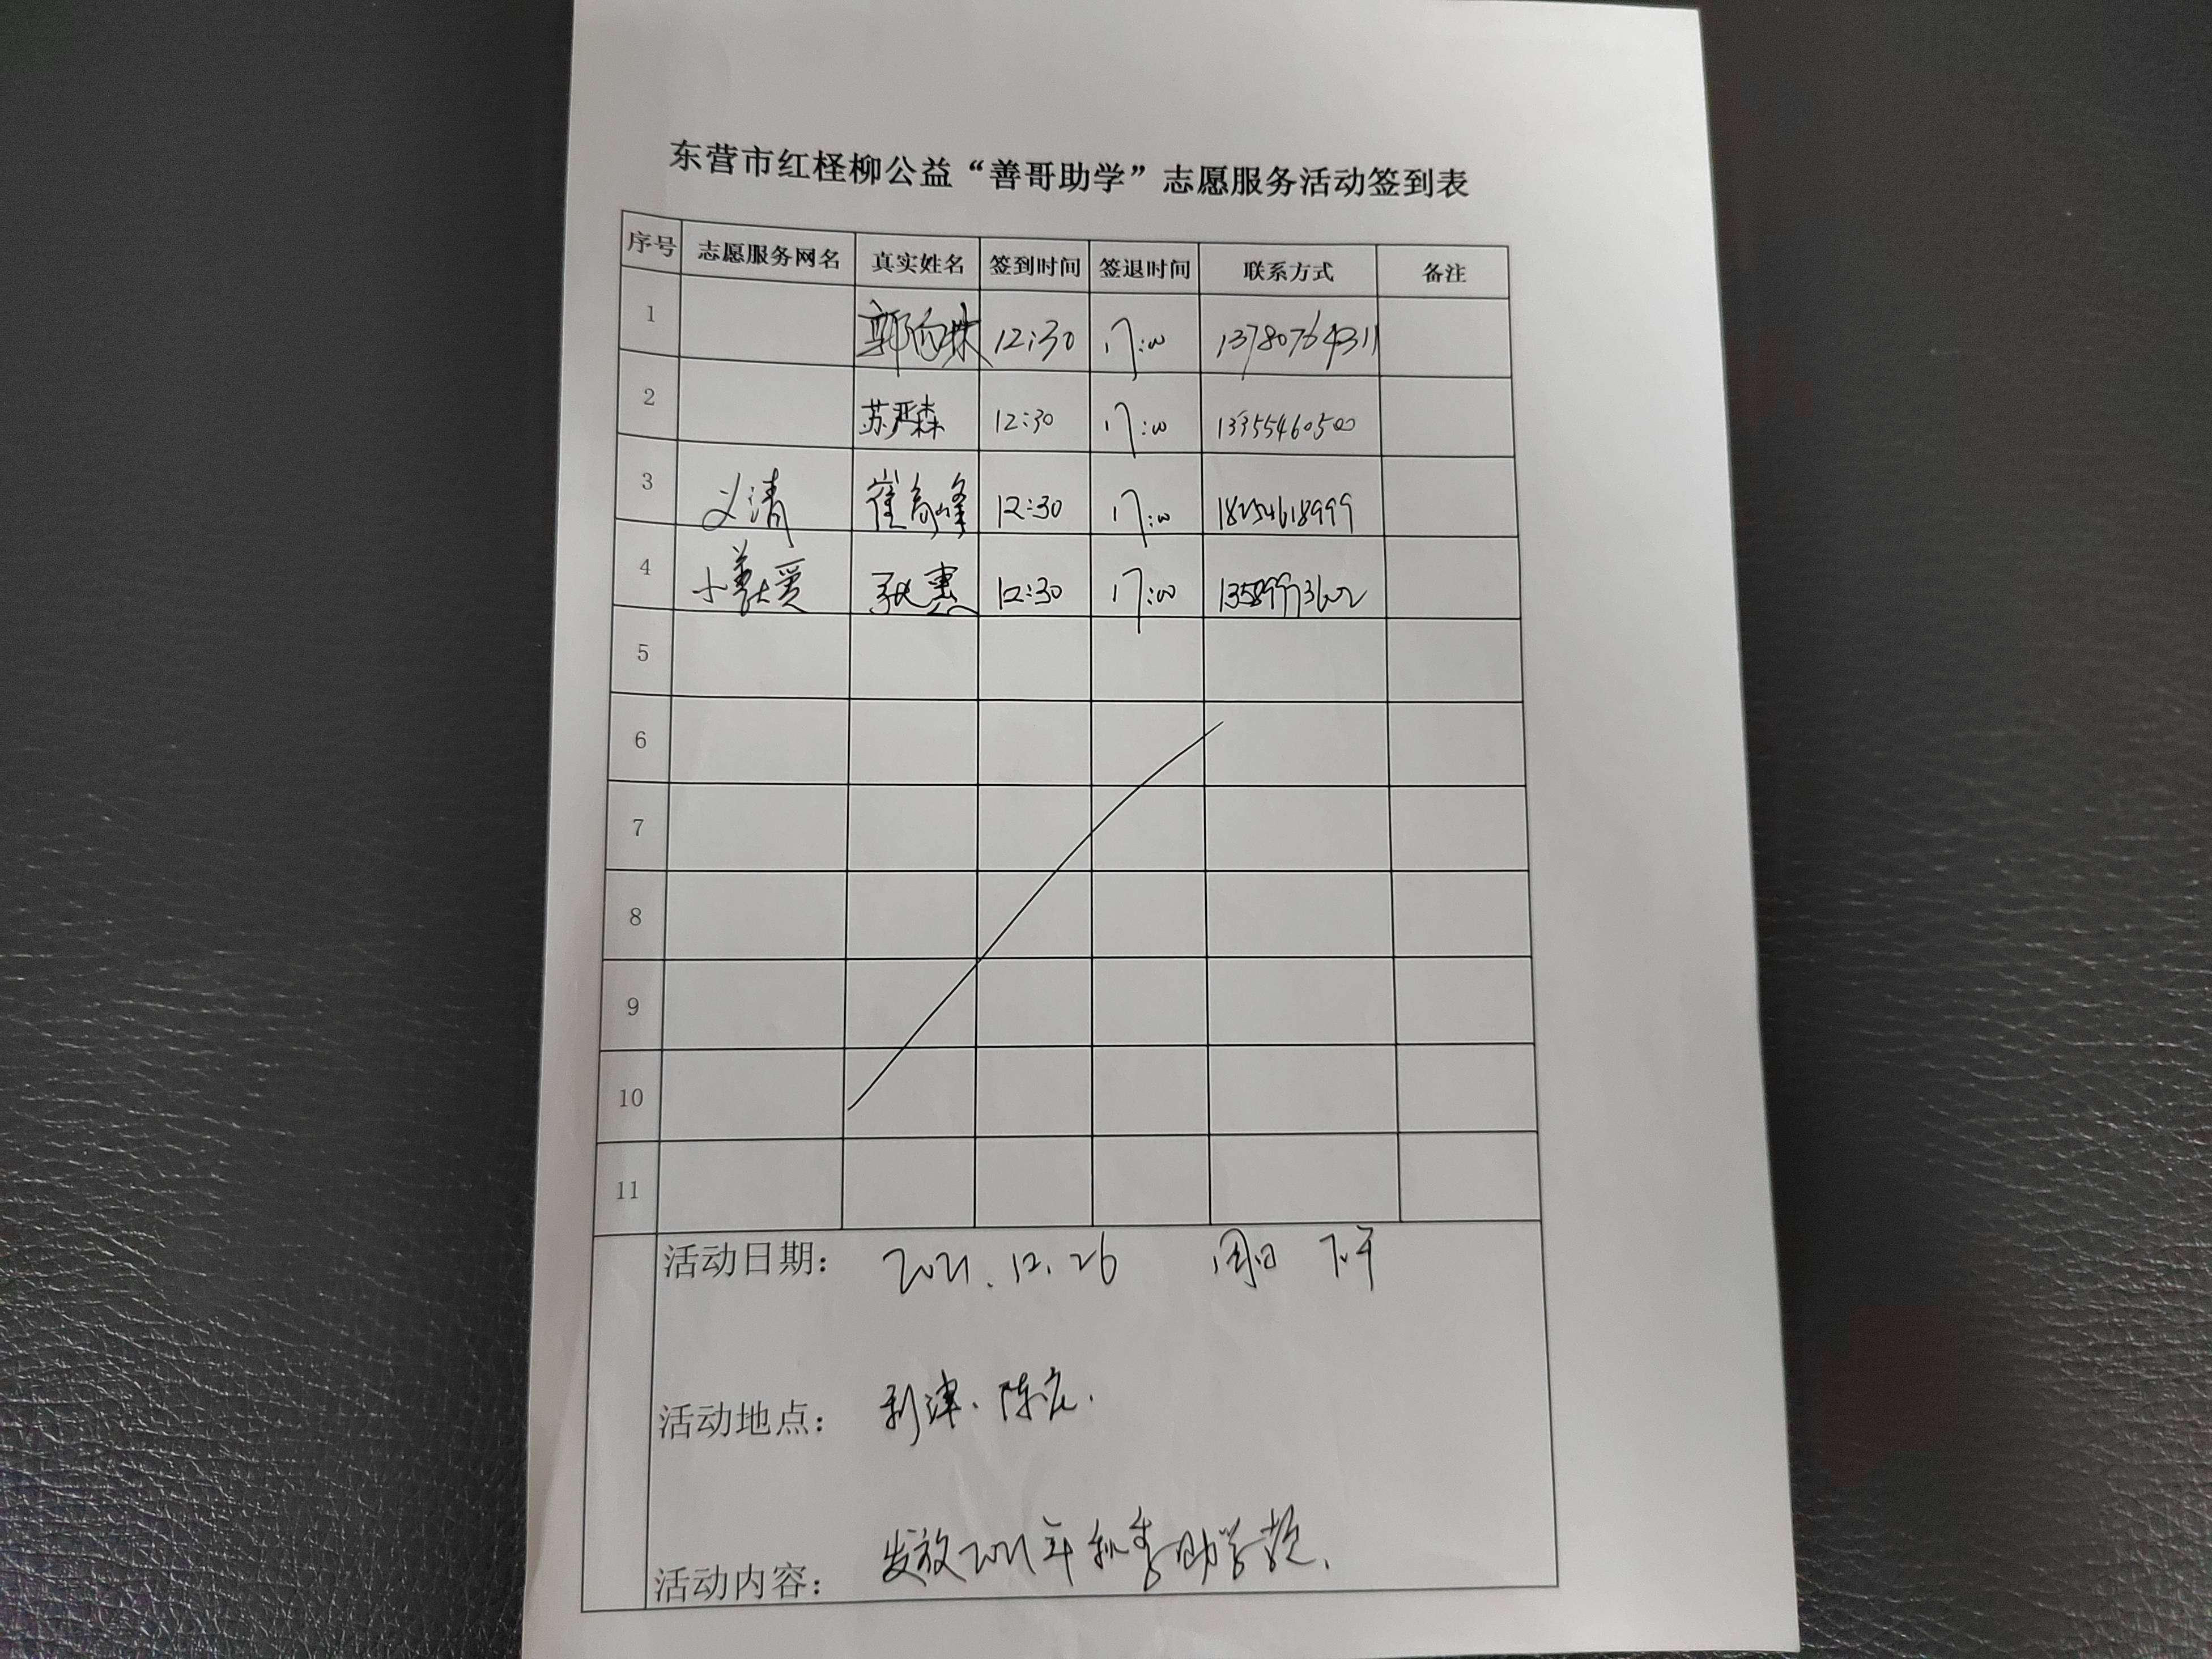 东营市红柽柳公益“善哥助学”志愿服务活动签到表
序号 志愿服务网名 真实姓名 签到时间 签退时间 联系方式 备注
1 12:30 17:00 13780764311
2 苏严森 12:30 17:00 13355460500
3 义清 崔高峰 12:30 17:00 18254618999
4 小善大爱 耿惠 12:30 17:00
5
6
7
8
9
10
11
活动日期： 2021.12.26 周日 下午
活动地点： 利津、陈庄.
活动内容： 发放2021年秋季助学款.